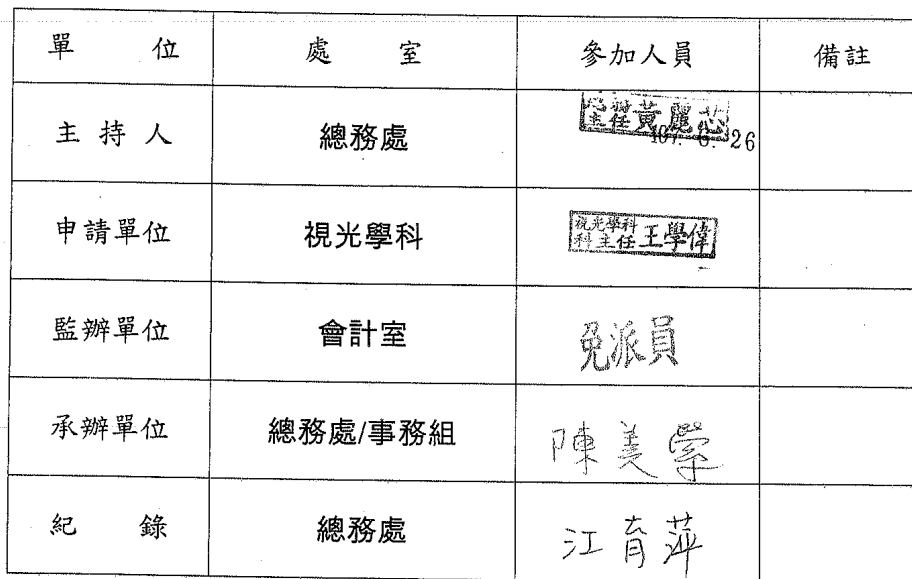 單 位 處 室 參加人員 備註
主 持 人 總務處 主任 黃麗芯
107. 6. 26
申請單位 視光學科 視光學科
科主任 王學偉
監辦單位 會計室 免派員
承辦單位 總務處/事務組 陳美縈
紀 錄 總務處 江育萍